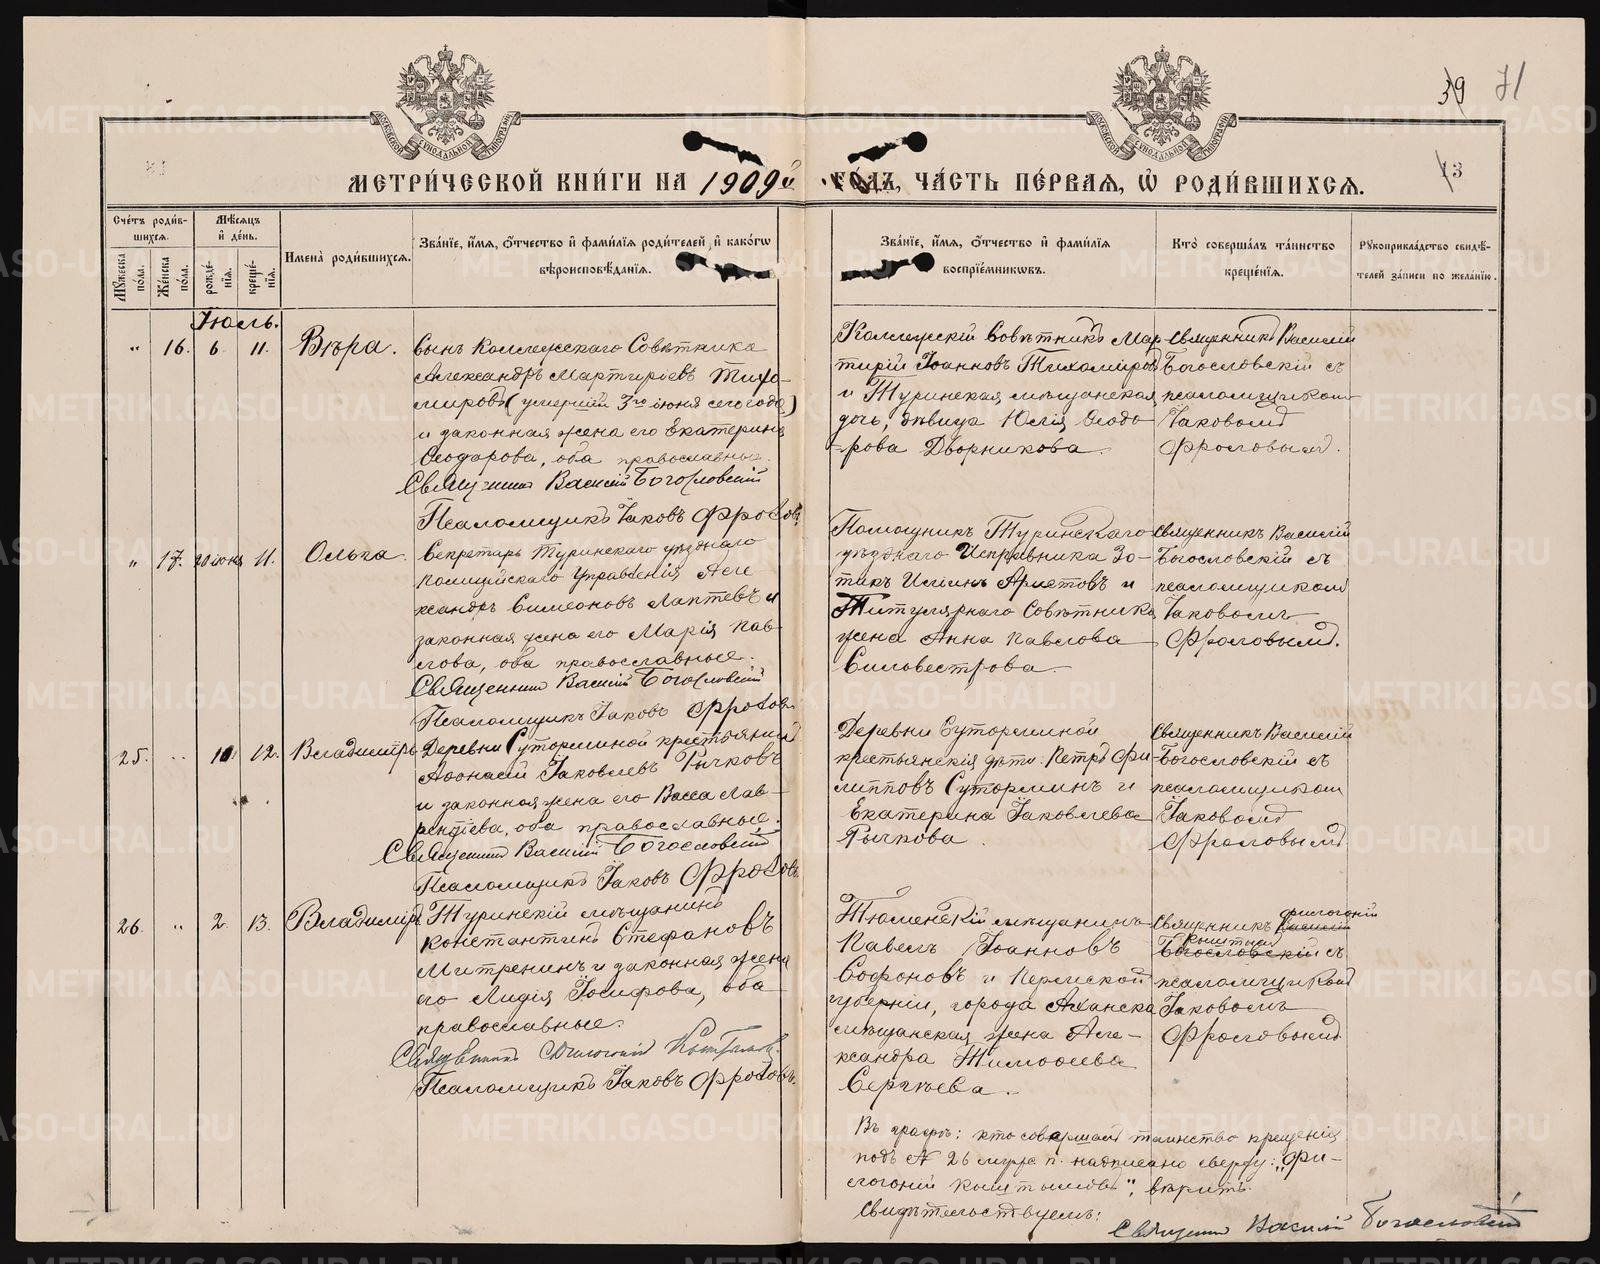 39 71
МЕТРИЧЕСКОЙ КНИГИ НА 1909й ГОДЪ, ЧАСТЬ ПЕРВАЯ, Ѡ РОДИВШИХСЯ.
13
Счетъ родив-
шихся.
Мужеска пола.
Женска пола.
Мѣсяцъ
и день.
рожде-
нія.
креще-
нія.
Имена родившихся.
Званіе, имя, отчество и фамилія родителей, и какогѡ
вѣроисповѣданія.
Званіе, имя, отчество и фамилія
воспріемникѡвъ.
Кто совершалъ таинство
крещенія.
Рукоприкладство свидѣ-
телей записи по желанію.
Іюль.
" 16. 6. 11. Вѣра.
Сынъ Коллежскаго Совѣтника
Александръ Мартиріевъ Тихо-
мировъ (умерший 3го іюня сего года)
и законная жена его Екатерина
Ѳеодорова, оба православные.
Священникъ Василій Богословскій
Псаломщикъ Іаковъ Фроловъ
Коллежскій Совѣтникъ Мар-
тирій Іоанновъ Тихомировъ
и Туринская мѣщанская
дочь, дѣвица Юлія Ѳеодо-
рова Дворникова.
Священникъ Василій
Богословскій съ
псаломщикомъ
Іаковомъ
Фроловымъ.
" 17. 20 іюня 11. Ольга.
Секретарь Туринскаго уѣзднаго
полицейскаго Управленія Але-
ксандръ Симеоновъ Лаптевъ и
законная жена его Марія Пав-
лова, оба православные.
Священникъ Василій Богословскій
Псаломщикъ Іаковъ Фроловъ
Помощникъ Туринскаго
уѣзднаго Исправника Зо-
тикъ Аристовъ и
Титулярнаго Совѣтника
жена Анна Павлова
Сильвестрова.
Священникъ Василій
Богословскій съ
псаломщикомъ
Іаковомъ
Фроловымъ.
25. " 10 12. Владиміръ
Деревни Сутормной крестьянинъ
Аѳонасій Іаковлевъ Рычковъ
и законная жена его Васса Лав-
рентіева, оба православные.
Священникъ Василій Богословскій
Псаломщикъ Іаковъ Фроловъ
Деревни Сутормной
крестьянскія дѣти: Петръ Фи-
липповъ Суторминъ и
Екатерина Іаковлева
Рычкова.
Священникъ Василій
Богословскій съ
псаломщикомъ
Іаковомъ
Фроловымъ
26. " 2. 13. Владиміръ
Туринскій мѣщанинъ
Константинъ Стефановъ
Митренинъ и законная жена
его Лидія Іосифова, оба
православные.
Священникъ Филогоній Коштымовъ.
Псаломщикъ Іаковъ Фроловъ.
Тюменскій мѣщанинъ
Павелъ Іоанновъ
Софоновъ и Пермской
губерніи, города Аханска
мѣщанская жена Але-
ксандра Тимоѳеева
Сергѣева.
Филогоній
Священникъ Василій
Коштымовъ
Богословскій съ
псаломщикомъ
Іаковомъ
Фроловымъ
Въ графѣ: кто совершалъ таинство крещенія
подъ № 26 муж. п. надписано сверху: „Фи-
логоній Коштымовъ", вѣрить.
Свидѣтельствуемъ:
Священникъ Василій Богословскій